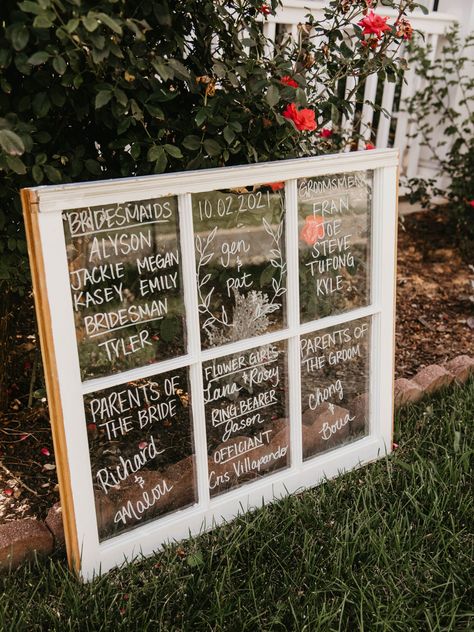 BRIDESMAIDS
ALYSON
JACKIE MEGAN
KASEY EMILY
BRIDESMAN
TYLER
10.02.2021
gen
&
pat
GROOMSMEN
FRAN
JOE
STEVE
TUFONG
KYLE
PARENTS OF
THE BRIDE
Richard
&
Malou
FLOWER GIRLS
Jana & Rosey
RING BEARER
Jason
OFFICIANT
Cris Villapando
PARENTS OF
THE GROOM
Chong
&
Boua